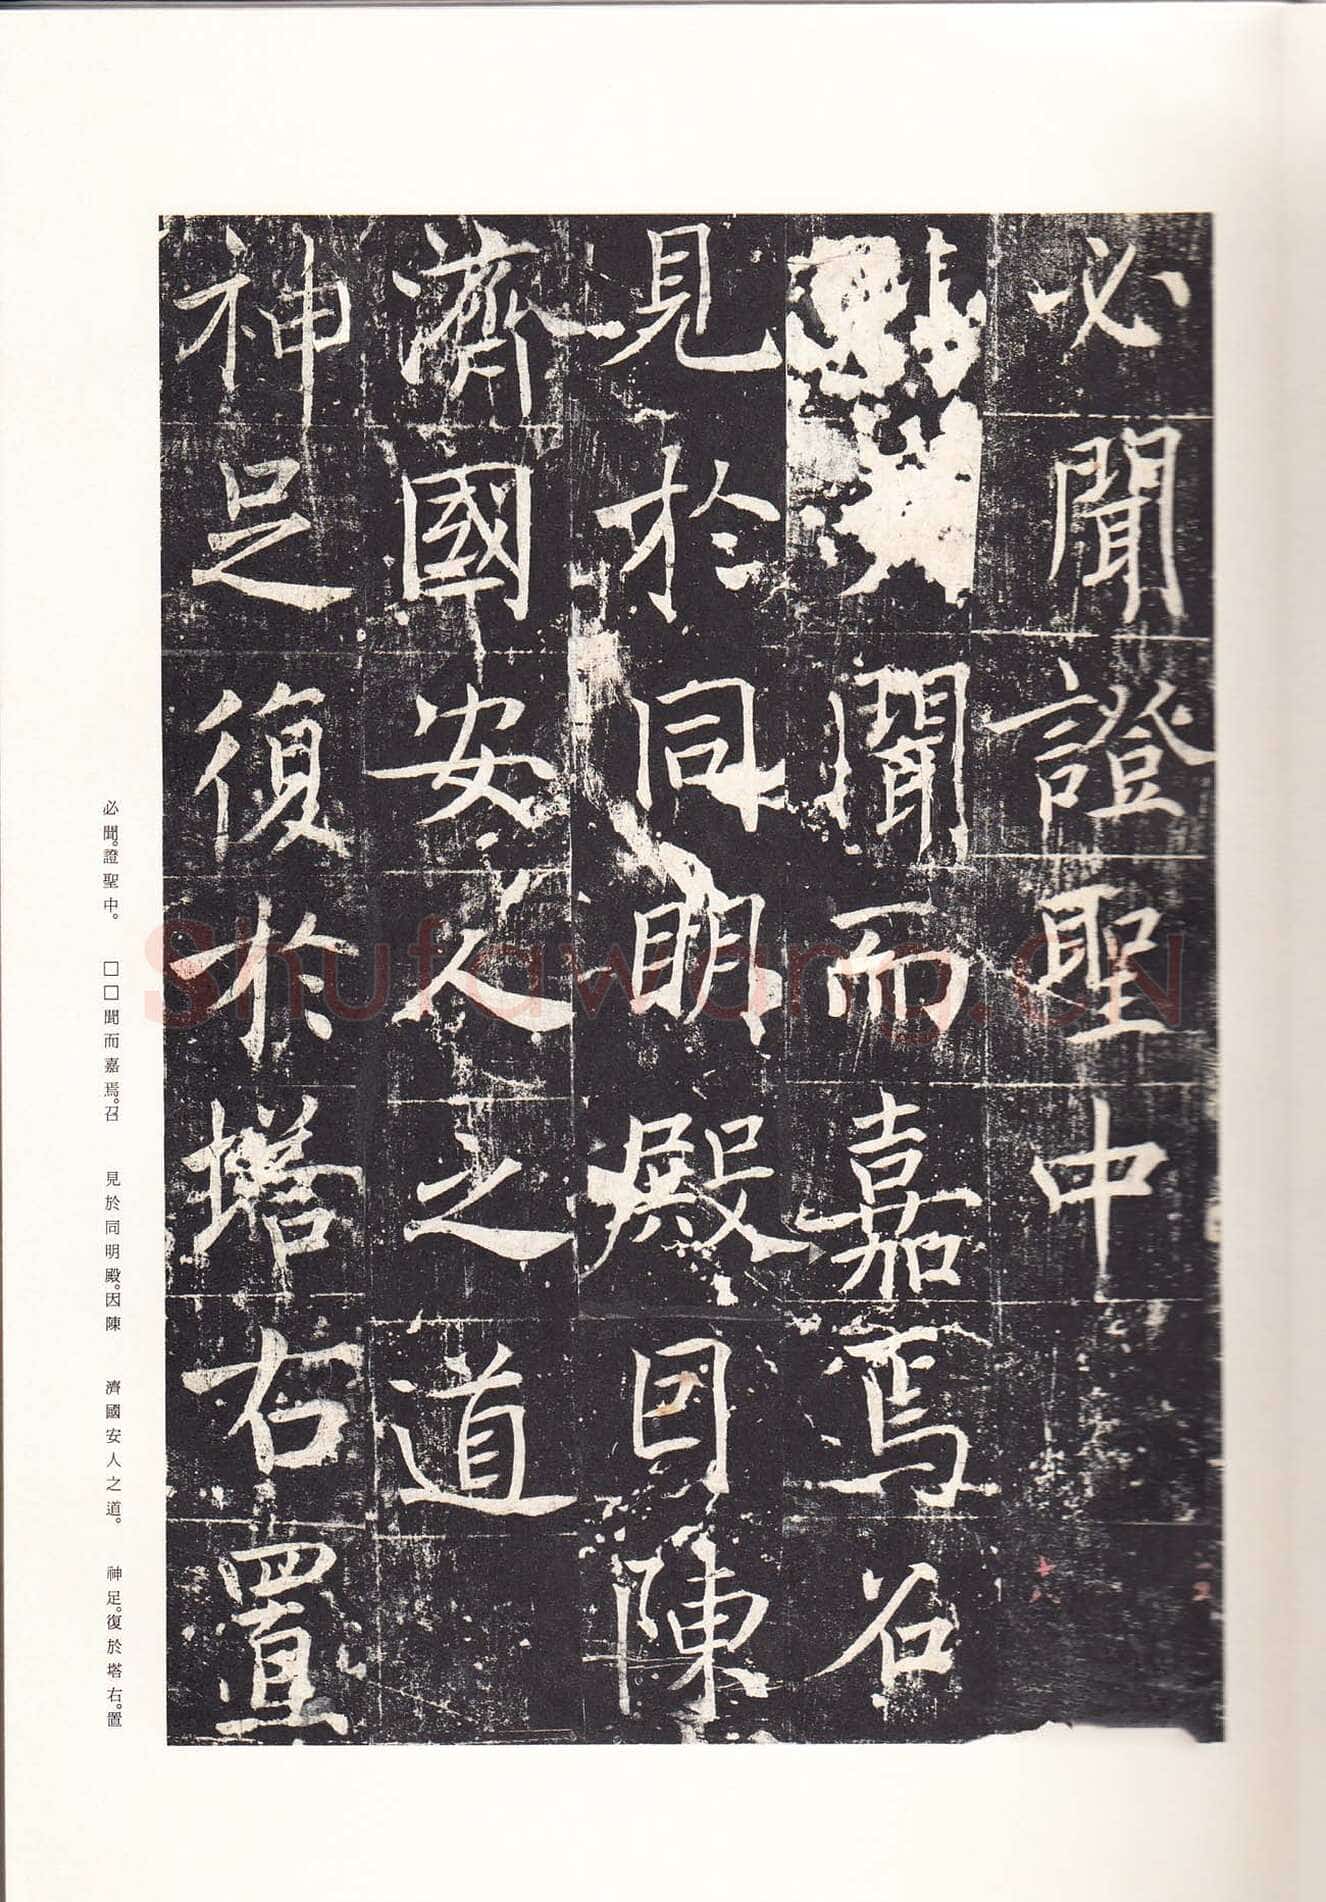 必聞證聖中
聞而嘉焉召
見於同明殿因陳
濟國安人之道
神足復於塔右置
必聞。證聖中。 □□聞而嘉焉。召 見於同明殿。因陳 濟國安人之道。 神足。復於塔右。置
Shufawang.CN